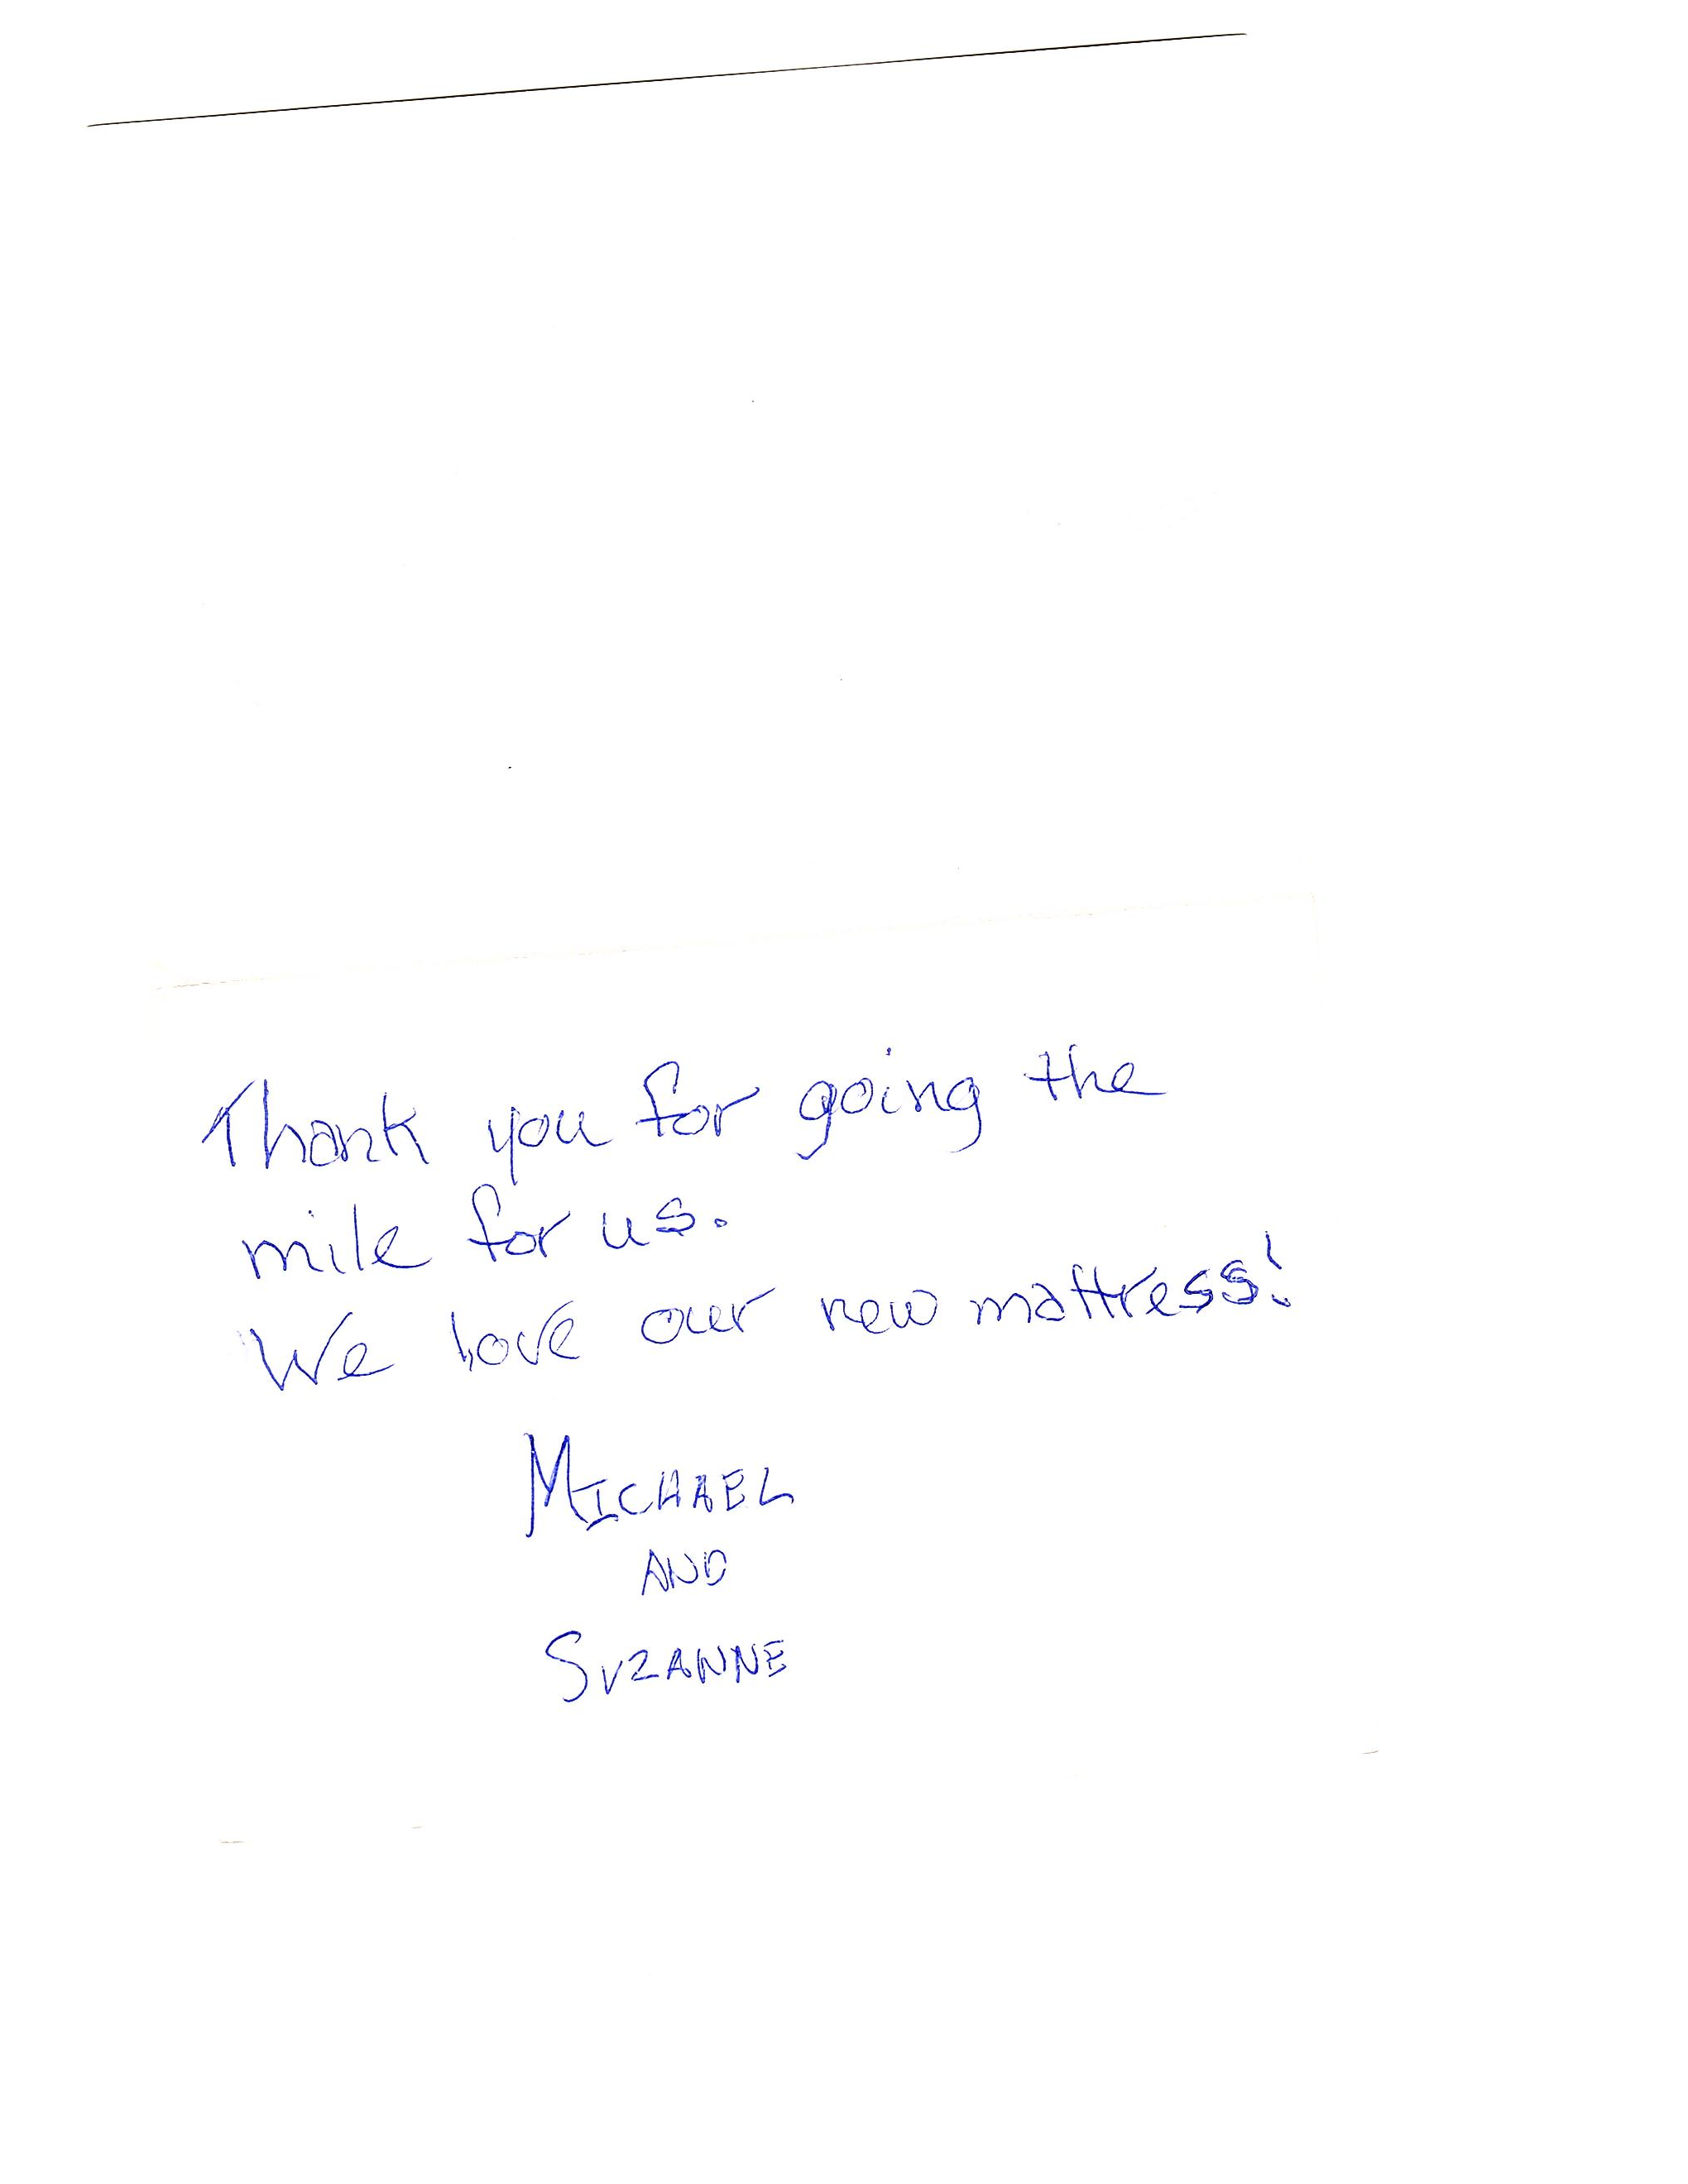 Thank you for going the
mile for us.
We love our new mattress!
MICHAEL
AND
SUZANNE